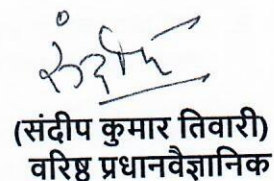 संदीप
(संदीप कुमार तिवारी)
वरिष्ठ प्रधानवैज्ञानिक